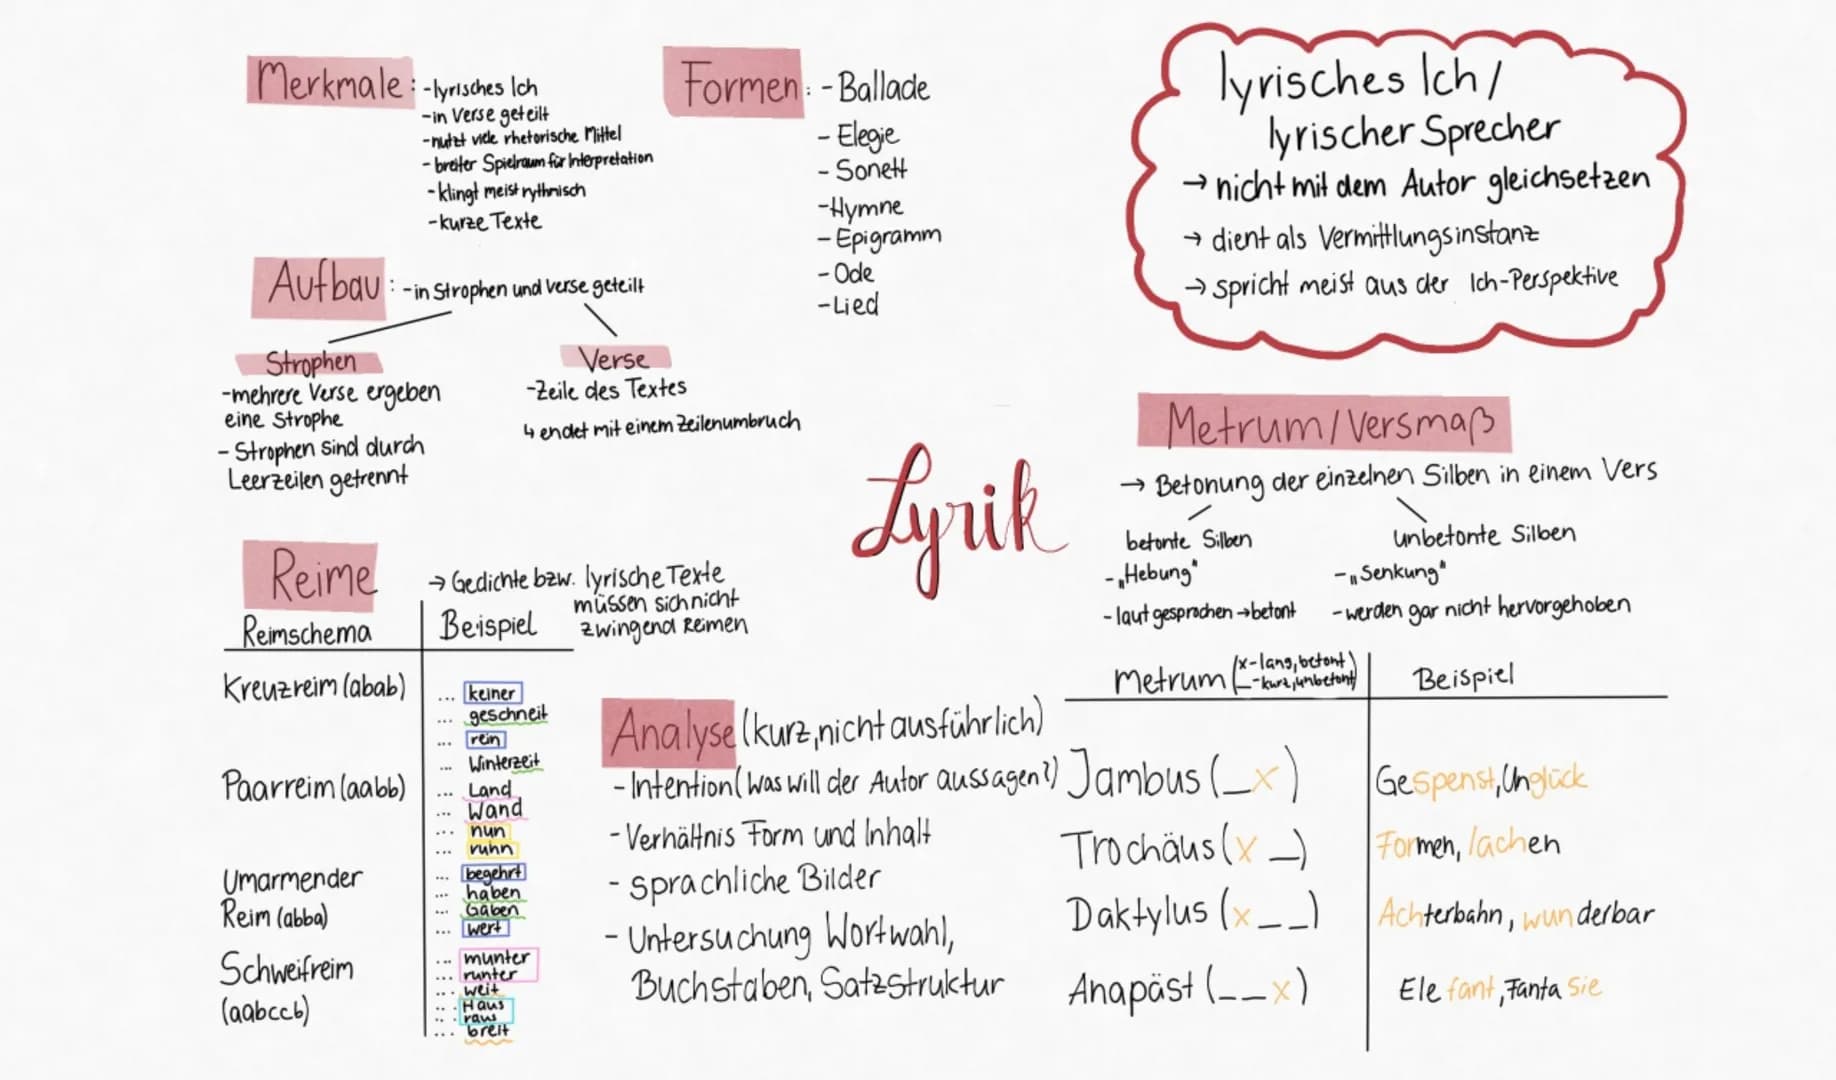 Merkmale:
-lyrisches Ich
-in Verse geteilt
-nutzt viele rhetorische Mittel
-breiter Spielraum für Interpretation
-klingt meist rythmisch
-kurze Texte
Formen:
-Ballade
-Elegie
-Sonett
-Hymne
-Epigramm
-Ode
-Lied
lyrisches Ich/
lyrischer Sprecher
→ nicht mit dem Autor gleichsetzen
→ dient als Vermittlungsinstanz
→ spricht meist aus der Ich-Perspektive
Aufbau:
-in Strophen und Verse geteilt
Strophen
-mehrere Verse ergeben
eine Strophe
- Strophen sind durch
Leerzeilen getrennt
Verse
-Zeile des Textes
↳ endet mit einem Zeilenumbruch
Lyrik
Metrum/Versmaß
→ Betonung der einzelnen Silben in einem Vers
betonte Silben
-„Hebung"
-laut gesprochen→betont
unbetonte Silben
-„Senkung"
-werden gar nicht hervorgehoben
Reime
→ Gedichte bzw. lyrische Texte
müssen sich nicht
zwingend Reimen
Reimschema
Beispiel
Kreuzreim (abab)
... keiner
... geschneit
... rein
... Winterzeit
Paarreim (aabb)
... Land
... Wand
... nun
... ruhn
Umarmender
Reim (abba)
... begehrt
... haben
... Gaben
... wert
Schweifreim
(aabccb)
... munter
... runter
... weit
... Haus
... raus
... breit
Analyse (kurz,nicht ausführlich)
-Intention(Was will der Autor aussagen?)
-Verhältnis Form und Inhalt
- sprachliche Bilder
- Untersuchung Wortwahl,
Buchstaben, Satzstruktur
Metrum (x-lang,betont
_-kurz,unbetont)
Beispiel
Jambus (_x)
Gespenst,Unglück
Trochäus (x _)
Formen, lachen
Daktylus (x _ _)
Achterbahn, wunderbar
Anapäst (_ _ x)
Elefant,Fantasie